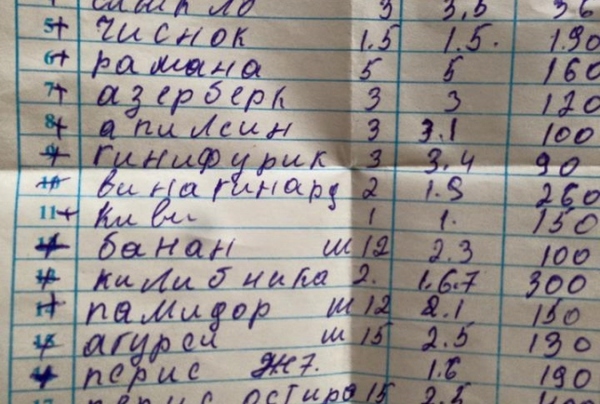 3 3,5
5+ чиснок 1.5 1.5. 190
6+ рамана 5 5 160
7+ азерберк 3 3 120
8+ апилсин 3 3.1 100
9+ гинифурик 3 3,4 90
10+ винагинард 2 1.9 260
11+ киви 1 1. 150
банан ш 12 2.3 100
килибника 2. 1.6.7 300
памидор ш 12 2.1 150
агурси ш 15 2.5 130
перис Дж7. 1.6 190
перис остира 15 2.5